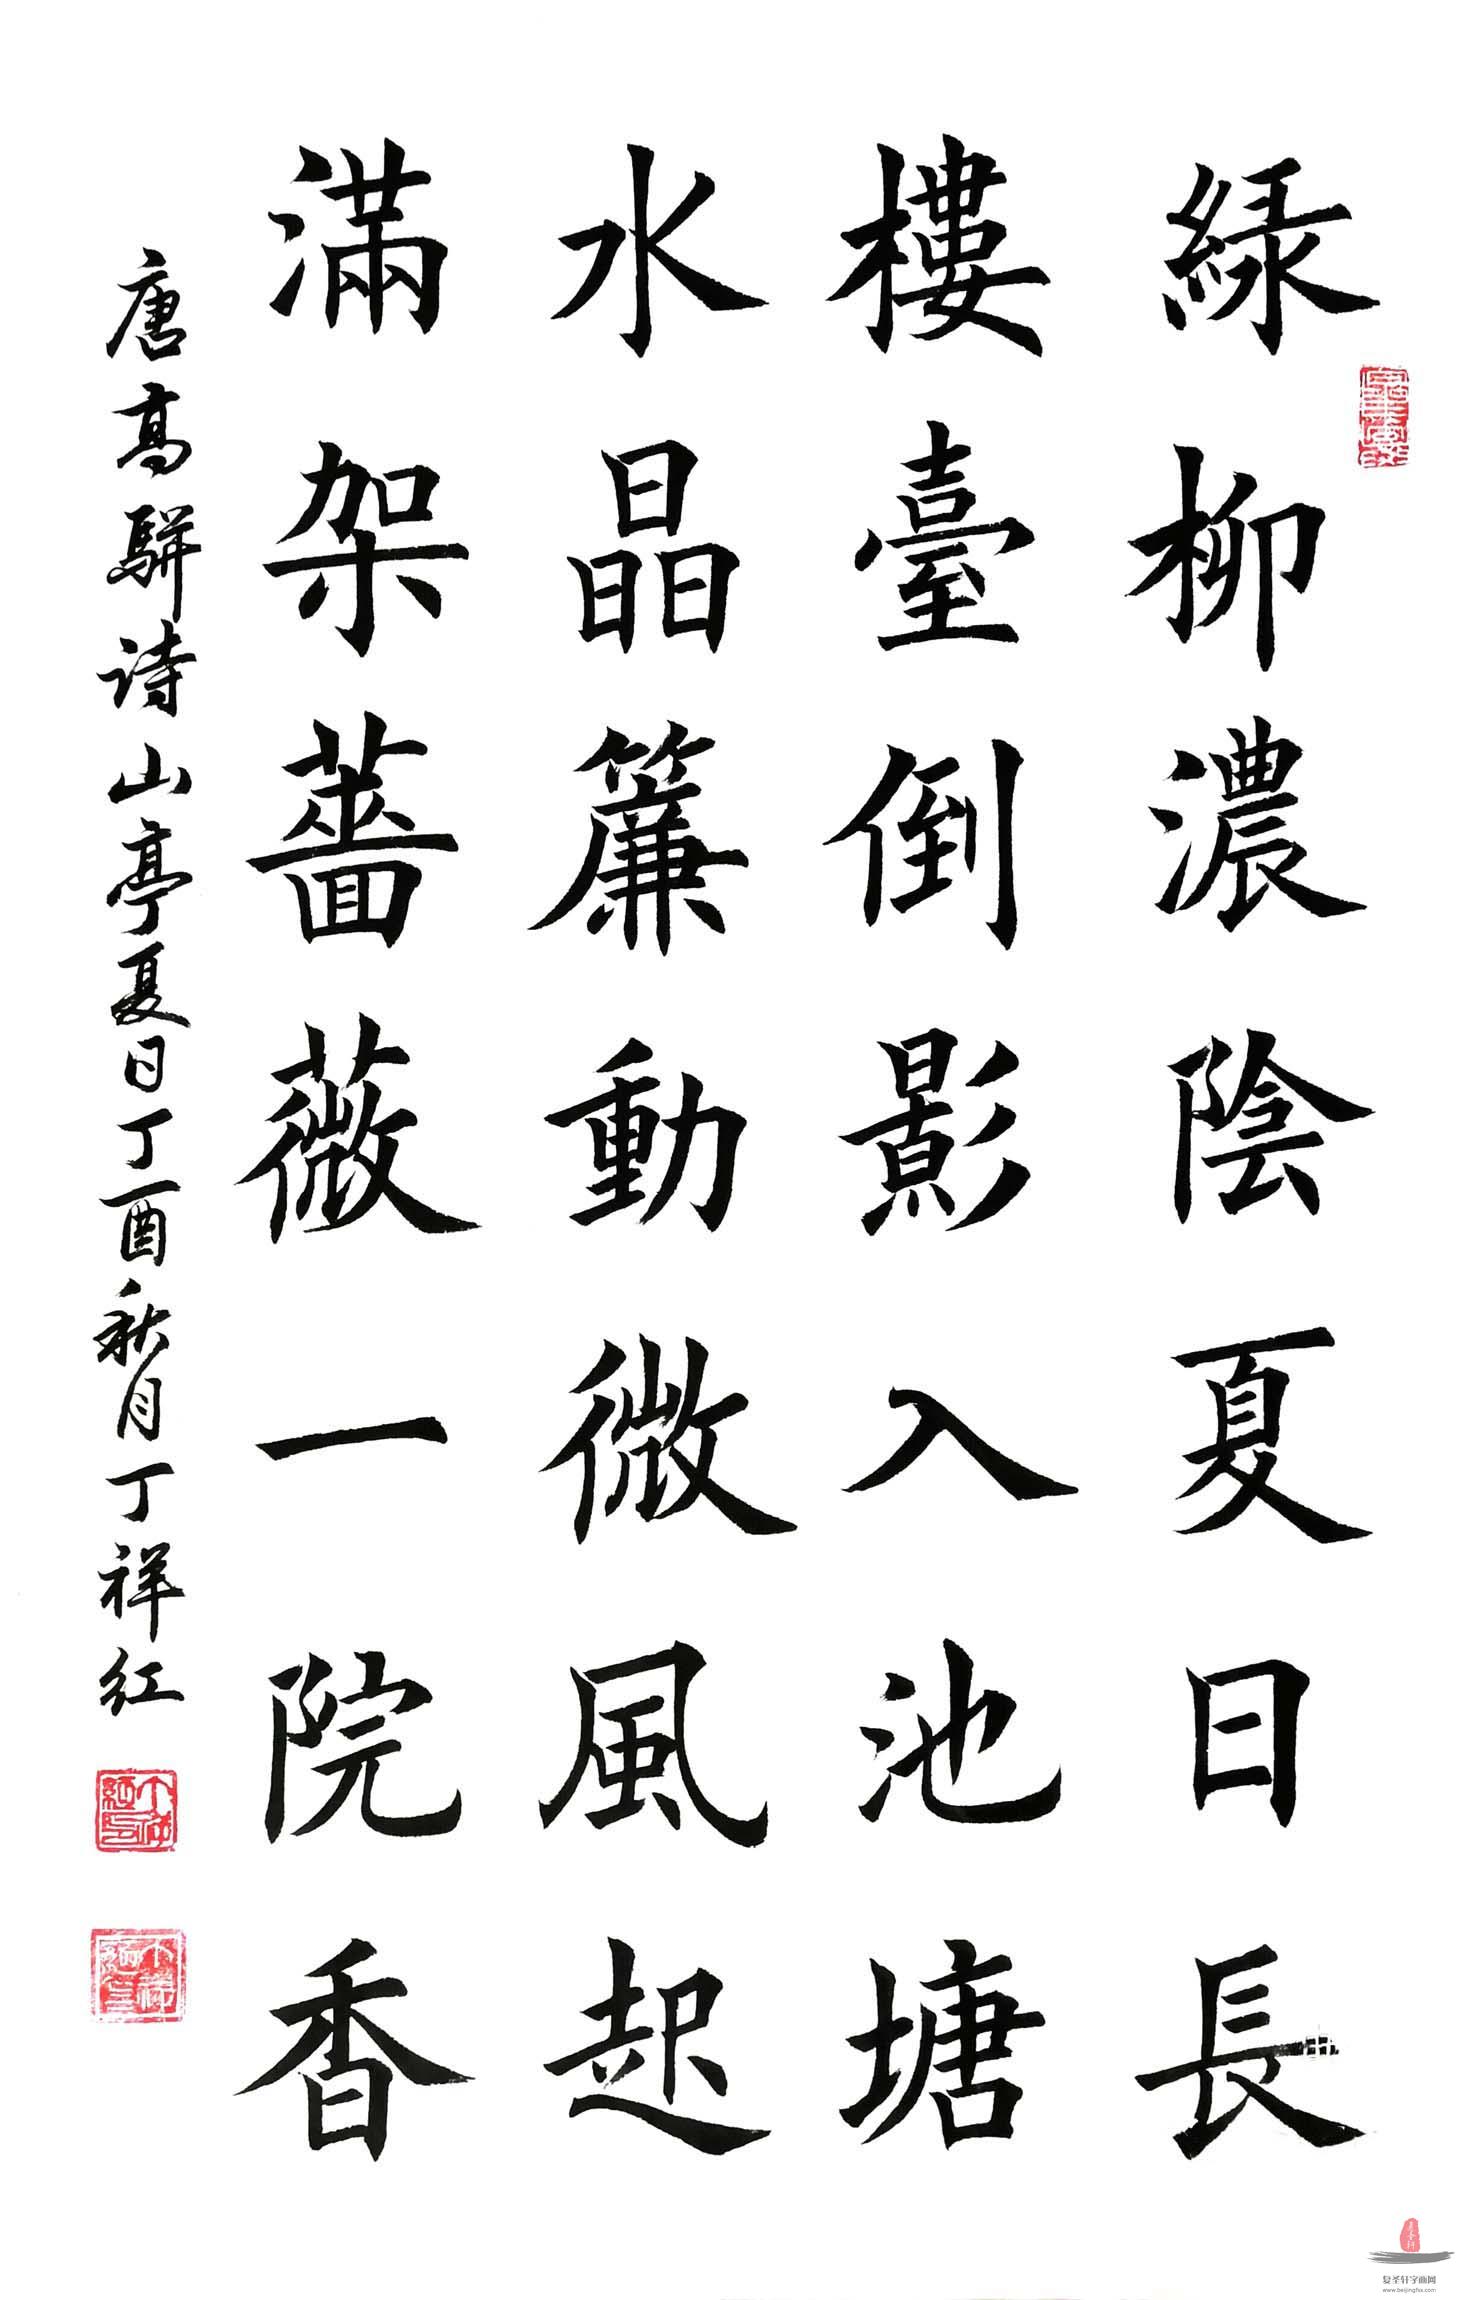 緑柳濃陰夏日長
樓臺倒影入池塘
水晶簾動微風起
滿架薔薇一院香
唐高駢诗山亭夏日丁酉秋月丁祥红
复圣轩字画网
www.beijingfxx.com